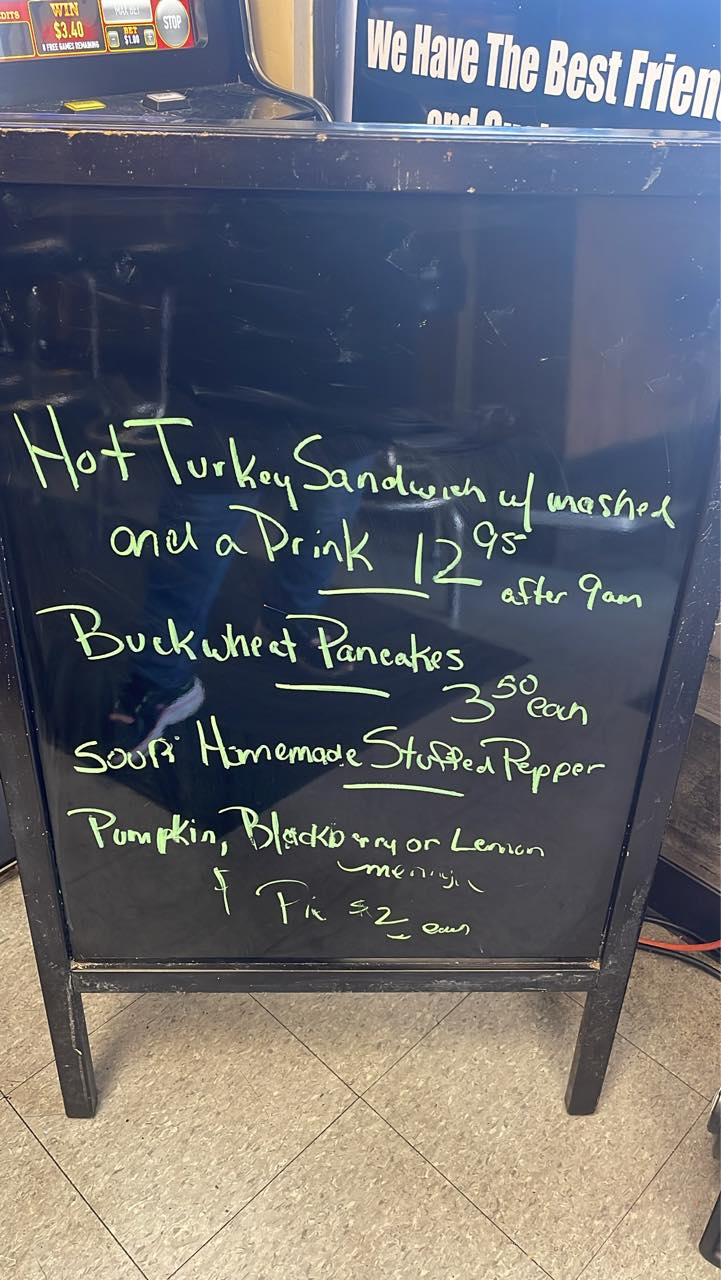 EDITS
WIN
$3.40
8 FREE GAMES REMAINING
MAX BET
BET
$1.00
STOP
We Have The Best Frien
Hot Turkey Sandwich w/ mashed
and a Drink 12 95
after 9am
Buckwheat Pancakes
3 50 each
Soup: Homemade Stuffed Pepper
Pumpkin, Blackberry or Lemon
Pie $2 each